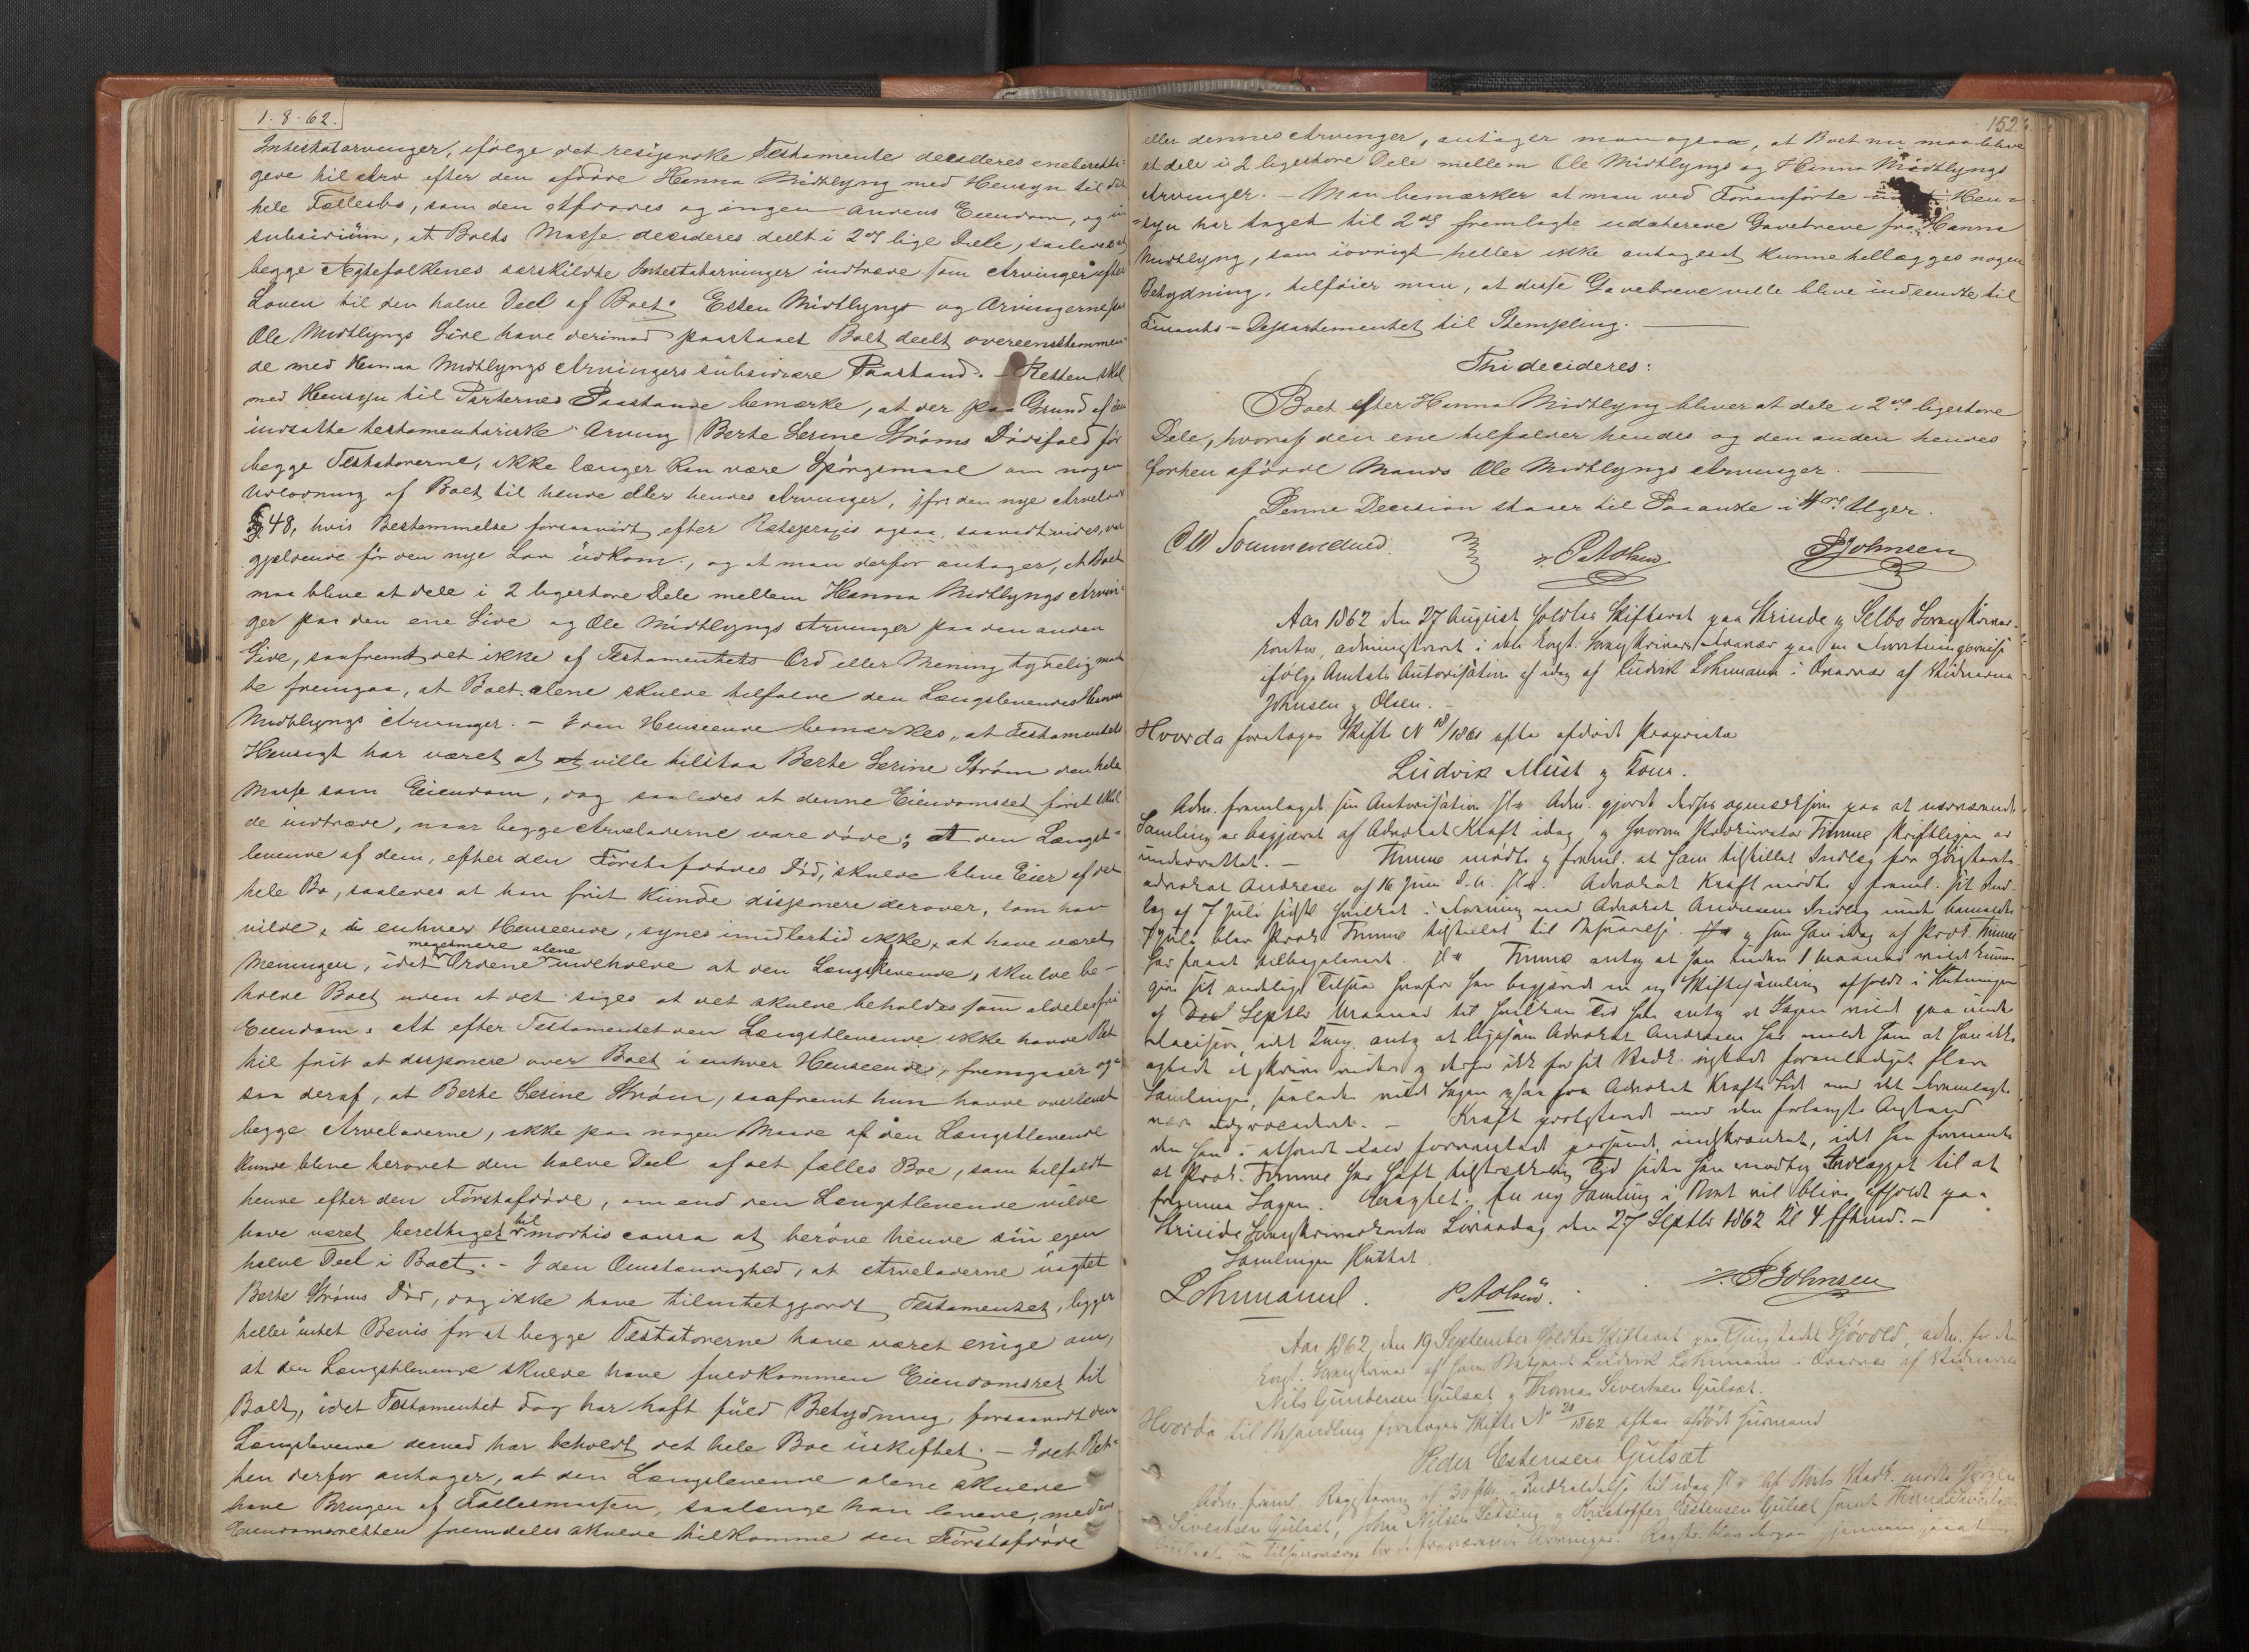 1.8.62.
Intestatarvinger, ifølge det reciproke Testamente decideres eneberetti-
gede til Arv efter den afdøde Hanna Midtlyng med Hensyn til det
hele Fællesbo, som den Afdødes og ingen Andens Eiendom, og in
subsidiüm, at Boets Masse decideres deelt i 2de lige Dele, saaledes at
begge Ægtefolkenes særskildte Intestatarvinger indtræde som Arvinger efter
Loven til den halve Deel af Boet. Esten Midtlyngs og Arvingerne paa
Ole Midtlyngs Side have derimod paastaaet Boet deelt overeensstemmen-
de med Hanna Midtlyngs Arvingers subsidiære Paastand. – Retten skal
med Hensyn til Parternes Paastande bemærke, at der paa Grund af den
indsatte testamentariske Arving Berte Serine Strøms Dødsfald før
begge Testatorerne, ikke længer kan være Spørgsmaal om nogen
Udlodning af Boet til hende eller hendes Arvinger, jfr. den nye Arvelovs
§ 48, hvis Bestemmelse forsaavidt efter Retspraxis ogsaa, saavidt vides, var
gjældende før den nye Lov udkom, og at man derfor antager, at Boet
maa blive at dele i 2 ligestore Dele mellem Hanna Midtlyngs Arvin-
ger paa den ene Side og Ole Midtlyngs Arvinger paa den anden
Side, saafremt det ikke af Testamentets Ord eller Mening tydelig maat-
te fremgaa, at Boet alene skulde tilfalde den Længstlevendes Hanna
Midtlyngs Arvinger. – I den Henseende bemærkes, at Testamentets
Hensigt har været at at ville tilstaa Berte Serine Strøm den hele
Masse som Eiendom, dog saaledes at denne Eiendomsret først skul-
de indtræde, naar begge Arveladerne vare døde; At den Længst-
levende af dem, efter den Førstafdødes Død, skulde blive Eier af det
hele Bo, saaledes at han frit kunde disponere derover, som han
vilde, i enhver Henseende, synes imidlertid ikke, at have været
Meningen, idet Ordene megetmere alene indeholde at den Længstlevende, skulde be-
holde Boet uden at det siges at det skulde beholdes som aldeles fri
Eiendom. At efter Testamentet den Længstlevende ikke havde Ret
til frit at disponere over Boet i enhver Henseende, fremgaaer og-
saa deraf, at Berte Serine Strøm, saafremt hun havde overlevet
begge Arveladerne, ikke paa nogen Maade af den Længstlevende
kunde blive berøvet den halve Deel af det fælles Boe, som tilfaldt
hende efter den Førstafdøde, om end den Længstlevende vilde
have været berettiget til mortis causa at berøve hende sin egen
halve Deel i Boet. – I den Omstændighed, at Arveladerne uagtet
Berte Strøms Død, dog ikke have tilintetgjordt Testamentet, ligger
heller intet Beviis for at begge Testatorerne have været enige om,
at den Længstlevende skulde have fuldkommen Eiendomsret til
Boet, idet Testamentet dog har haft fuld Betydning, forsaavidt den
Længstlevende derved har beholdt det hele Boe uskiftet. – Idet Ret-
ten derfor antager, at den Længstlevende alene skulde
have Brugen af Fællesmassen, saalænge han levede, medens
Eiendomsretten fremdeles skulde tilkomme den Førstafdøde
152.
eller dennes Arvinger, antager man ogsaa, at Boet nu maa blive
at dele i 2 ligestore Dele mellem Ole Midtlyngs og Hanna Midtlyngs
Arvinger. – Man bemærker at man ved Foranførte Hen-
syn har taget til 2de fremlagte udaterede Gavebreve fra Hanna
Midtlyng, som iøvrigt heller ikke antages at kunne tillægges nogen
Betydning, tilføier man, at disse Gavebreve ville blive indsendte til
Finants-Departementet til Stempling.
Thi decideres:
Boet efter Hanna Midtlyng bliver at dele i 2de ligestore
Dele, hvoraf den ene tilfalder hendes og den anden hendes
forhen afdøde Mands Ole Midtlyngs Arvinger.
Denne Decision staaer til Paaanke i 4re Uger.
P. A. Olsen
P Johnsen
Aar 1862 den 27 August holdtes Skifteret paa Strinde og Selbo Sorenskriver-
kontor, administreret i den const. Sorenskrivers Fravær paa en Forretningsreise
ifølge Amtets Autorisation af idag af Ludvik Lehmann i Overvær af Vidnerne
Johnsen og Olsen. –
Hvorda foretoges Skifte N 18/1861 efter afdød Proprietær
Ludvik Must og Kone.
Adm. fremlagde sin Autorisation Adm. gjorde derhos opmærksom paa at nærværende
Samling er begjæret af Advokat Kraft idag og hvorom Prokurator Timme skriftligen er
underrettet. – Timme mødte og freml. et ham tilstillet Indlæg fra Høiesterets-
advokat Andresen af 16 Juni d. A. Advokat Kraft mødte og freml. sit Ind-
læg af 7 Juli sidstl. hvilket i Forening med Advokat Andresens Indlæg
7 Juli blev Prok. Timme tilstillet til Besvarelse og som han idag af Prok. Timme
har faaet tilbageleveret. Timme antog at han inden 1 Maaned vilde kunne
give sit endelige Tilsvar hvorfor han begjærede en ny Skiftesamling afholdt i Slutningen
af Septbr Maaned til hvilken Tid han antog at Sagen vilde gaa under
Decision, idet Comp. antog at ligesom Advokat Andresen har meldt ham at han ikke
agtede at skrive videre og derfor ikke for sit Vedk. ønskede foranlediget flere
Samlinger, saaledes vilde Sagen ogsaa fra Advokat Krafts Side med det Fremlagte
være udprocederet. – Kraft protesterede mod den forlangte Anstand
den han i ethvert Fald forventede indskrænket, idet han formente
at Prok. Timme har haft tilstrækkelig Tid siden han modtog Indlægget til at
fremme Sagen. Eragtet: En ny Samling i Boet vil blive afholdt paa
Strinde Sorenskriverkontor Løverdag den 27 Septbr 1862 Kl 4 Efterm. –
Samlingen sluttet.
Lehmann. P A Olsen. P Johnsen
Aar 1862 den 19 September holdtes Skifteret paa Thingstedet Kjøvold, adm. for den
const. Sorenskriver af hans Ludvik Lehmann i Overvær af Vidnerne
Nils Gundersen Gulset og Thomas Sivertsen Gulset.
Hvorda til Behandling foretoges Skifte N 21/1862 efter afdød Huusmand
Peder Estensen Gulset
Adm. freml. Registrering af 30 og Indkaldelse til idag Af Boets Vedk. mødte Jørgen
Sivertsen Gulset, John Nilsen Setseng og Kristoffer Estensen Gulset samt